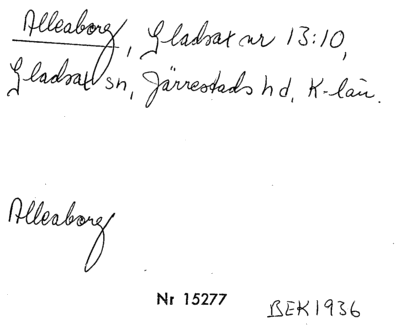 Alleaborg, Gladsax nr 13:10,
Gladsax sn, Järrestads hd, K-län.
Alleaborg
Nr 15277 BEK 1936